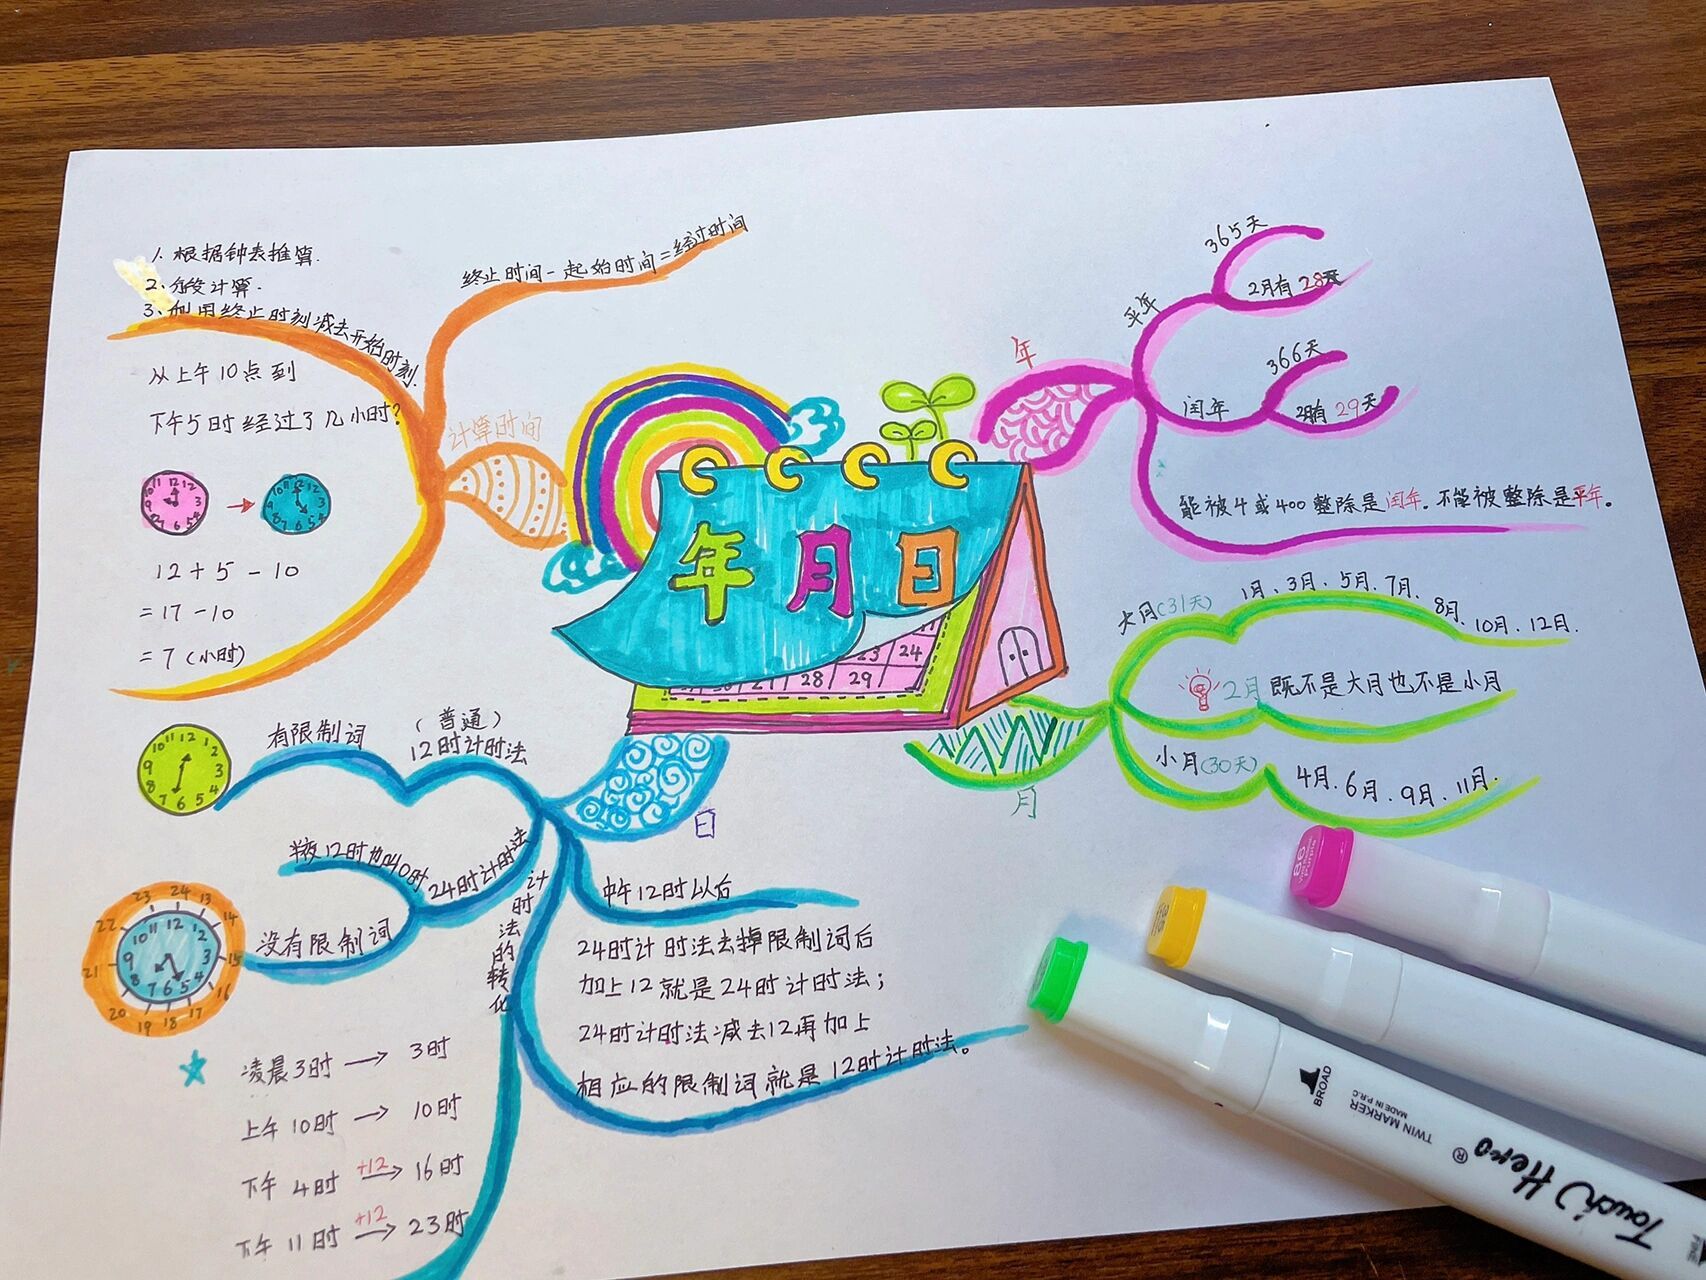 年月日
23 24
27 28 29
年
平年
365天
2月有28天
闰年
366天
2月有29天
能被4或400整除是闰年。不能被整除是平年。
月
大月(31天)
1月、3月、5月、7月、8月、10月、12月.
2月既不是大月也不是小月
小月(30天)
4月、6月、9月、11月.
日
(普通)
12时计时法
有限制词
11 12 1 2 3 4 5 6 7 8 9 10
24时计时法
半夜12时也叫0时
没有限制词
13 14 15 16 17 18 19 20 21 22 23 24
24时法的转化
中午12时以后
24时计时法去掉限制词后
加上12就是24时计时法；
24时计时法减去12再加上
相应的限制词就是12时计时法。
凌晨3时→3时
上午10时→10时
下午4时 +12→ 16时
下午11时 +12→ 23时
计算时间
终止时间-起始时间=经过时间
1、根据钟表推算.
2、分段计算.
3、利用终止时刻减去开始时刻.
从上午10点到
下午5时经过了几小时?
12+5-10
=17-10
=7(小时)
BROAD
TWIN MARKER
MADE IN P.R.C
Touch Hero®